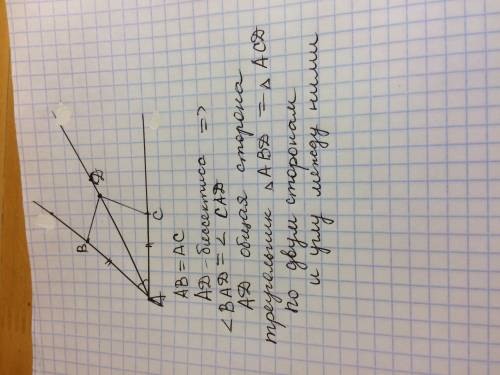 B
D
C
A
AB = AC
AD - биссектиса =>
∠ BAD = ∠ CAD
AD общая сторона
треугольник △ ABD = △ ACD
по двум сторонам
и углу между ними